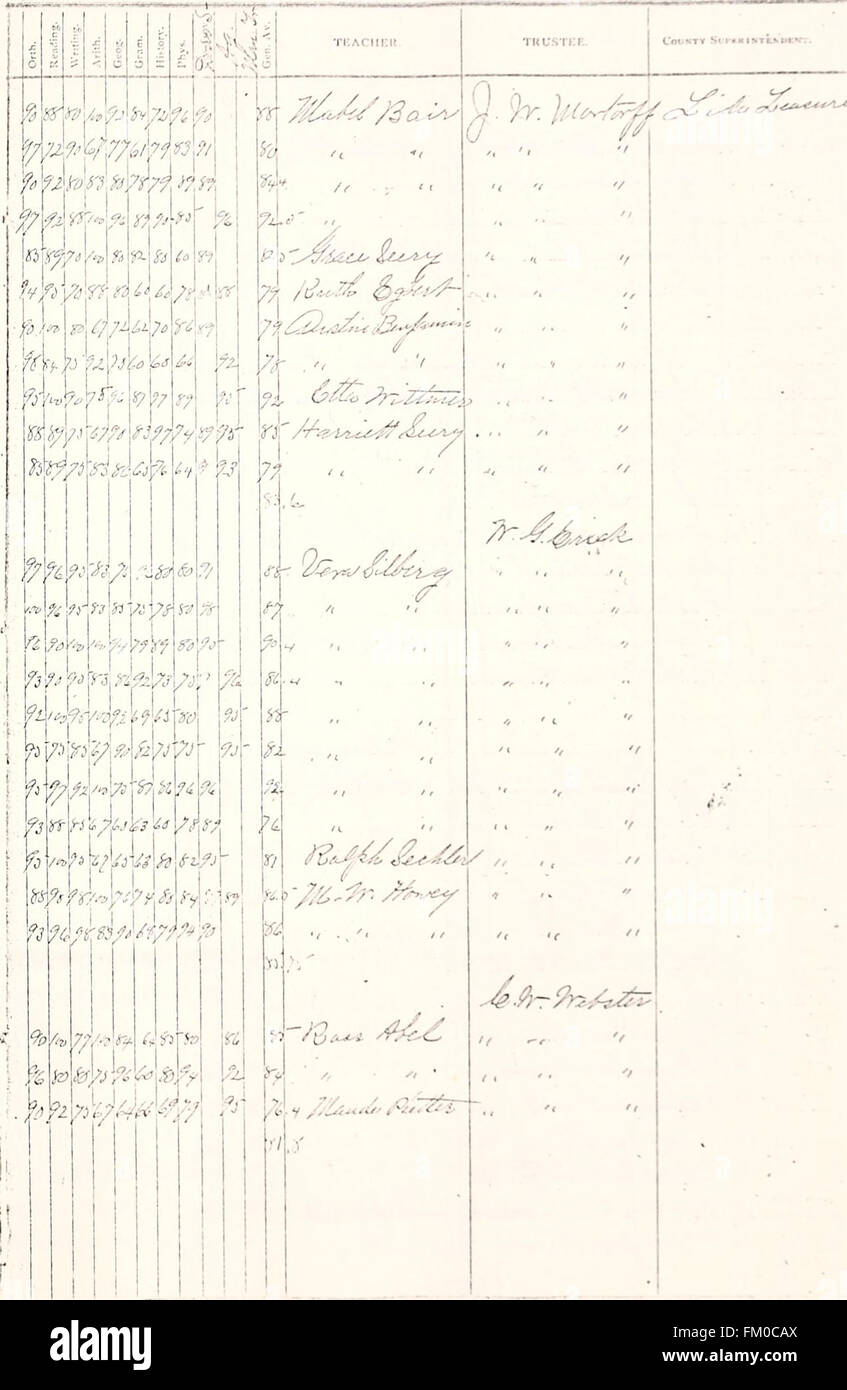 Orth. Reading. Writing. Arith. Geog. Gram. History. Phys. Gen. Av. TEACHER. TRUSTEE. COUNTY SUPERINTENDENT.
90 88 80 100 84 72 96 90 88 Mabel Bair J. W. Mortorff Lida Leasure
97 72 90 67 77 61 79 83 91 80 " " " " "
90 92 80 83 80 78 79 89 89 84.4 " " " " "
97 92 88 100 96 89 90 85 96 92.5 " " " "
85 89 70 100 80 82 80 60 89 Grace Seery " " "
94 95 70 88 80 60 60 78 88 79 Ruth Egbert " " "
90 100 80 67 72 62 70 86 89 79 Benjamin " " "
98 84 75 92 75 60 60 66 92 78 " " " " "
95 100 90 75 96 87 97 89 95 92 Etta Wittmer " " "
88 89 75 67 90 83 97 74 89 95 85 Harriett Seery " " "
85 89 75 83 86 65 76 64 93 79 " " " " "
83.6
W. G. Erick
97 96 95 83 80 80 91 88 Vera Silberg " " "
100 96 95 83 85 75 78 80 98 87 " " " " "
86 90 100 100 94 79 89 80 95 90.4 " " " " "
93 90 95 83 86 92 73 75 96 86.4 " " " " "
92 100 98 100 92 69 65 80 95 88 " " " " "
95 75 85 67 90 82 75 75 95 82 " " " " "
95 97 92 100 75 86 96 96 92 " " " " "
93 88 85 67 65 63 60 78 89 76 " " " " "
95 100 95 67 65 63 80 82 95 81 Ralph Sechler " " "
85 95 98 100 76 74 80 84 89 86.5 M. W. Howey " " "
93 96 98 83 90 68 79 94 90 86 " " " " " "
C. W. Webster
90 100 77 100 84 64 85 80 86 85 Ross Abel " " "
96 80 88 75 96 60 80 94 92 84 " " " " "
90 92 75 67 64 66 69 79 95 76.4 Maude " " "
81.8
alamy
Image ID: FM0CAX
www.alamy.com